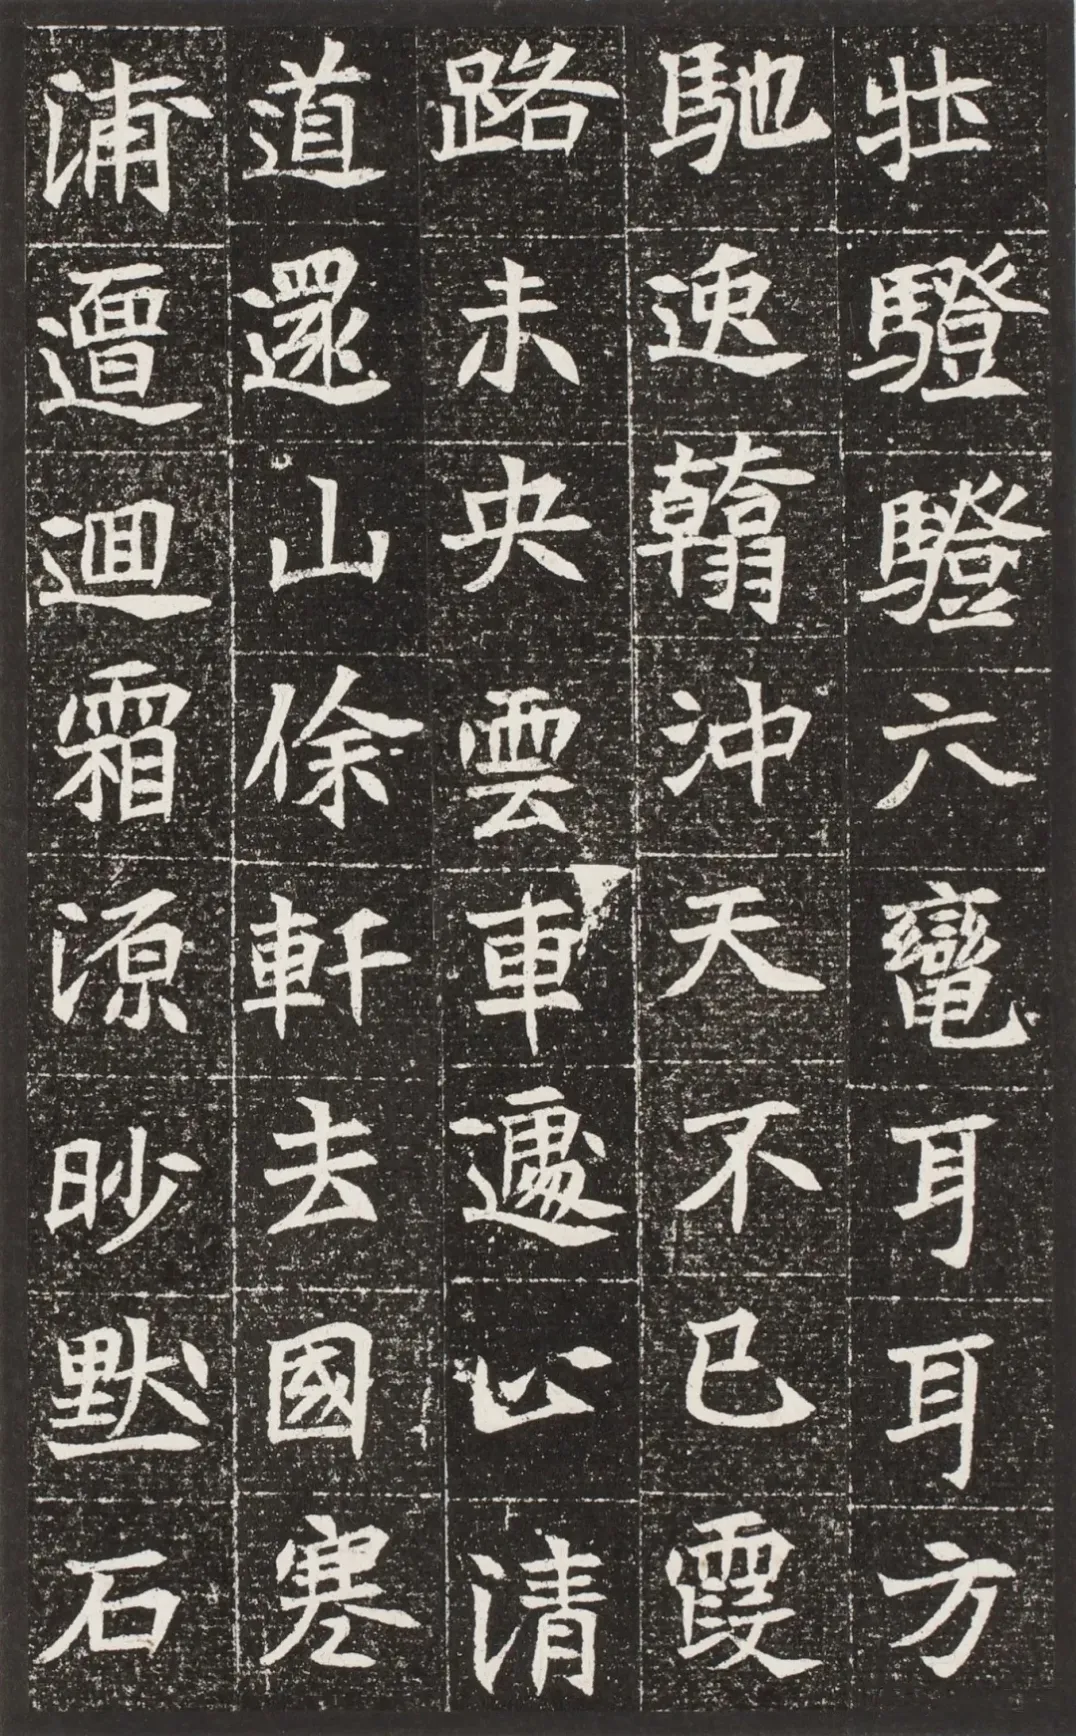 壯䮴䮴六轡耳耳方
馳速翰沖天不已霞
路未央雲車遽止清
道還山徐軒去國寒
浦邅迴霜源眇默石